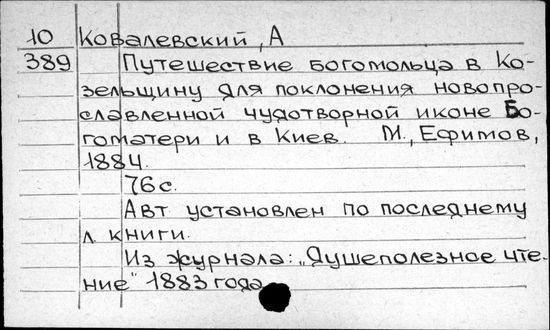 10 Ковалевский, А
389 Путешествие богомольца в Ко-
зельщину для поклонения новопро-
славленной чудотворной иконе Бо-
гоматери и в Киев. М., Ефимов,
1884.
76 с.
Авт. установлен по последнему
л. книги.
Из журнала: „Душеполезное чте-
ние" 1883 года